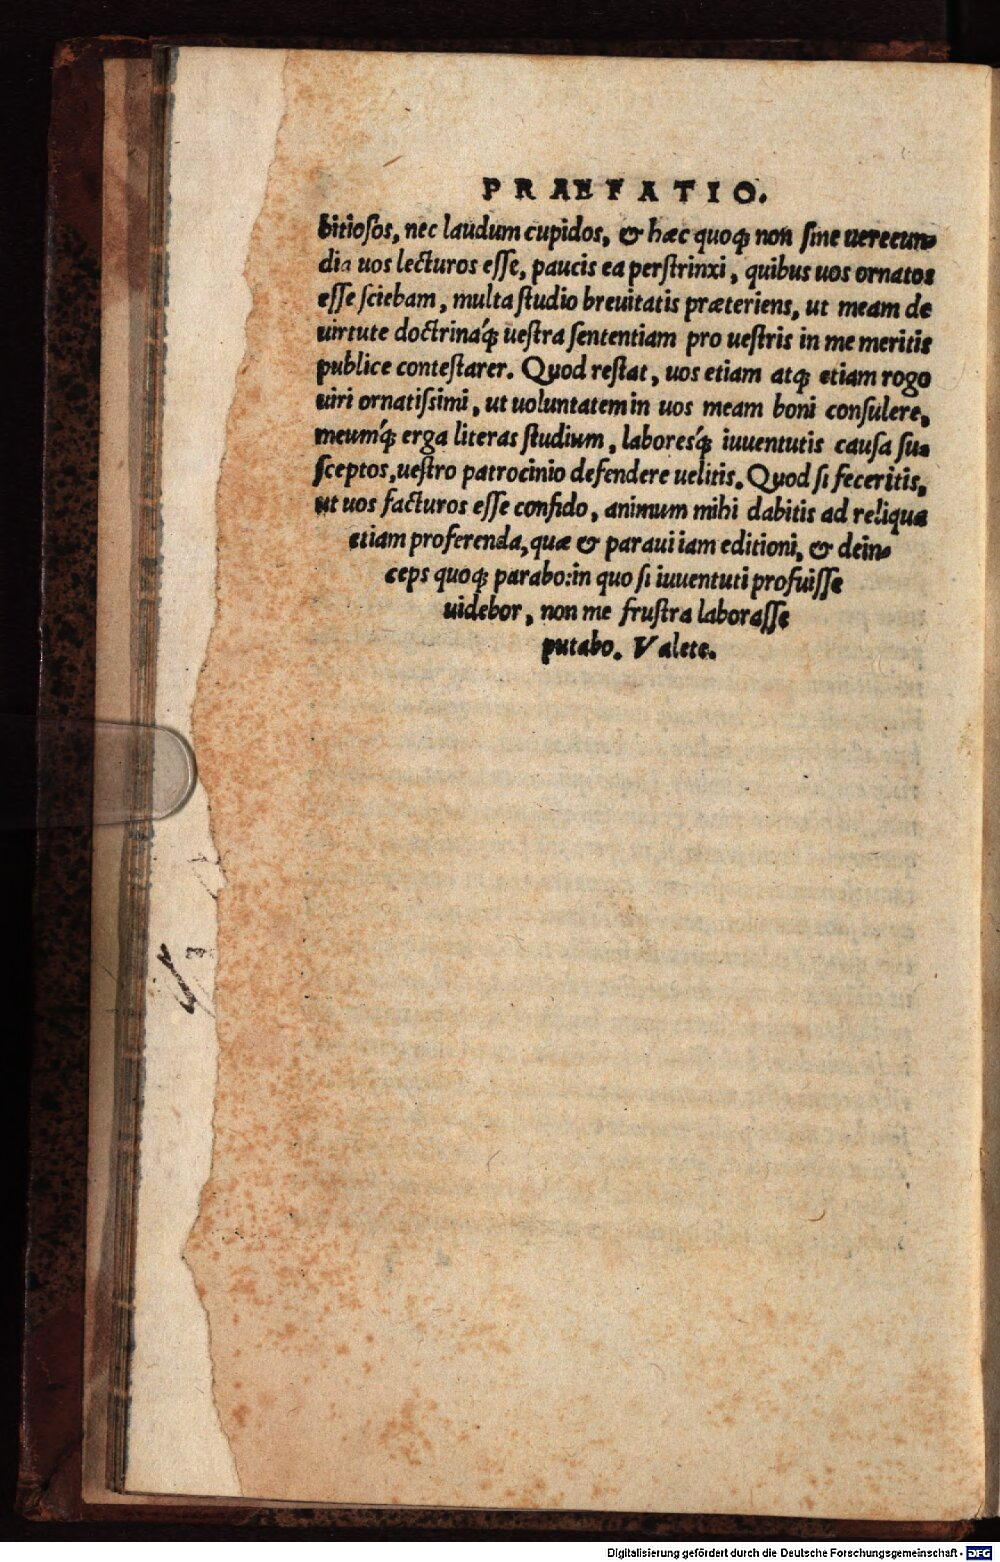 PRAEFATIO.
bitiosos, nec laudum cupidos, & hæc quoq; non sine uerecun-
dia uos lecturos esse, paucis ea perstrinxi, quibus uos ornatos
esse sciebam, multa studio breuitatis præteriens, ut meam de
uirtute doctrinaq́; uestra sententiam pro uestris in me meritis
publice contestarer. Quod restat, uos etiam atq; etiam rogo
uiri ornatissimi, ut uoluntatem in uos meam boni consulere,
meumq́; erga literas studium, laboresq́; iuuentutis causa su-
sceptos, uestro patrocinio defendere uelitis. Quod si feceritis,
ut uos facturos esse confido, animum mihi dabitis ad reliqua
etiam proferenda, quæ & paraui iam editioni, & dein-
ceps quoq; parabo: in quo si iuuentuti profuisse
uidebor, non me frustra laborasse
putabo. Valete.
Digitalisierung gefördert durch die Deutsche Forschungsgemeinschaft - DFG